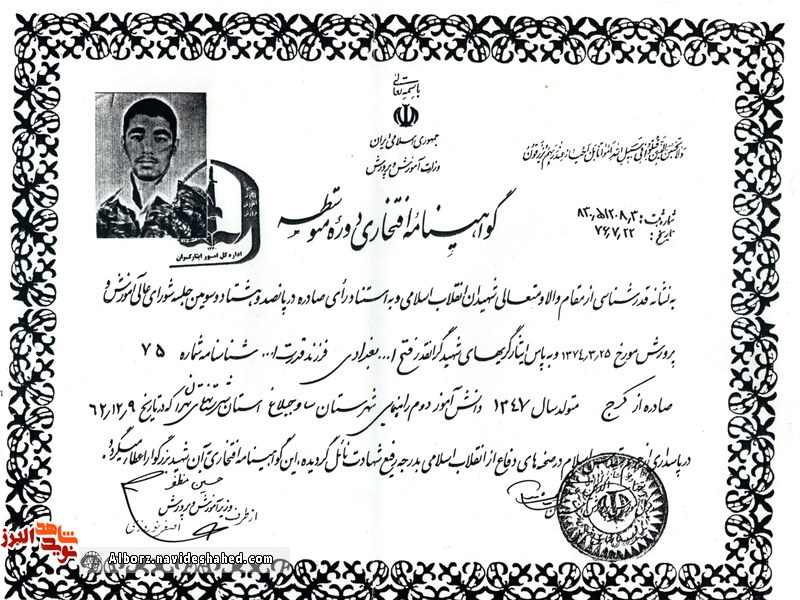 باسمه تعالی
جمهوری اسلامی ایران
وزارت آموزش و پرورش
ولا تحسبن الذین قتلوا فی سبیل الله امواتا بل احیاء عند ربهم یرزقون
گواهینامهٔ افتخاری دورهٔ متوسطه
شماره ثبت:
تاریخ: ۷۶,۷,۲۲
اداره کل امور ایثارگران
به نشانه قدرشناسی از مقام والا و متعالی شهیدان انقلاب اسلامی و به استناد رأی صادره در پانصد و هشتاد و سومین جلسه شورای عالی آموزش و
پرورش مورخ ۱۳۷۴,۳,۲۵ و به پاس ایثارگریهای شهید گرانقدر فتح ا... بغدادی فرزند قدرت ا... شناسنامه شماره ۷۵
صادره از کرج متولد سال ۱۳۴۷ دانش آموز دوم راهنمایی شهرستان ساوجبلاغ استان تهران که در تاریخ ۶۲,۱۲,۹
در پاسداری از اسلام در صحنه های دفاع از انقلاب اسلامی بدرجه رفیع شهادت نائل گردیده، این گواهینامه افتخاری آن شهید بزرگوار اعطاء میگردد.
حسین مظفر
وزیر آموزش و پرورش
از طرف:
شاهد
نوید
البرز
Alborz.navideshahed.com